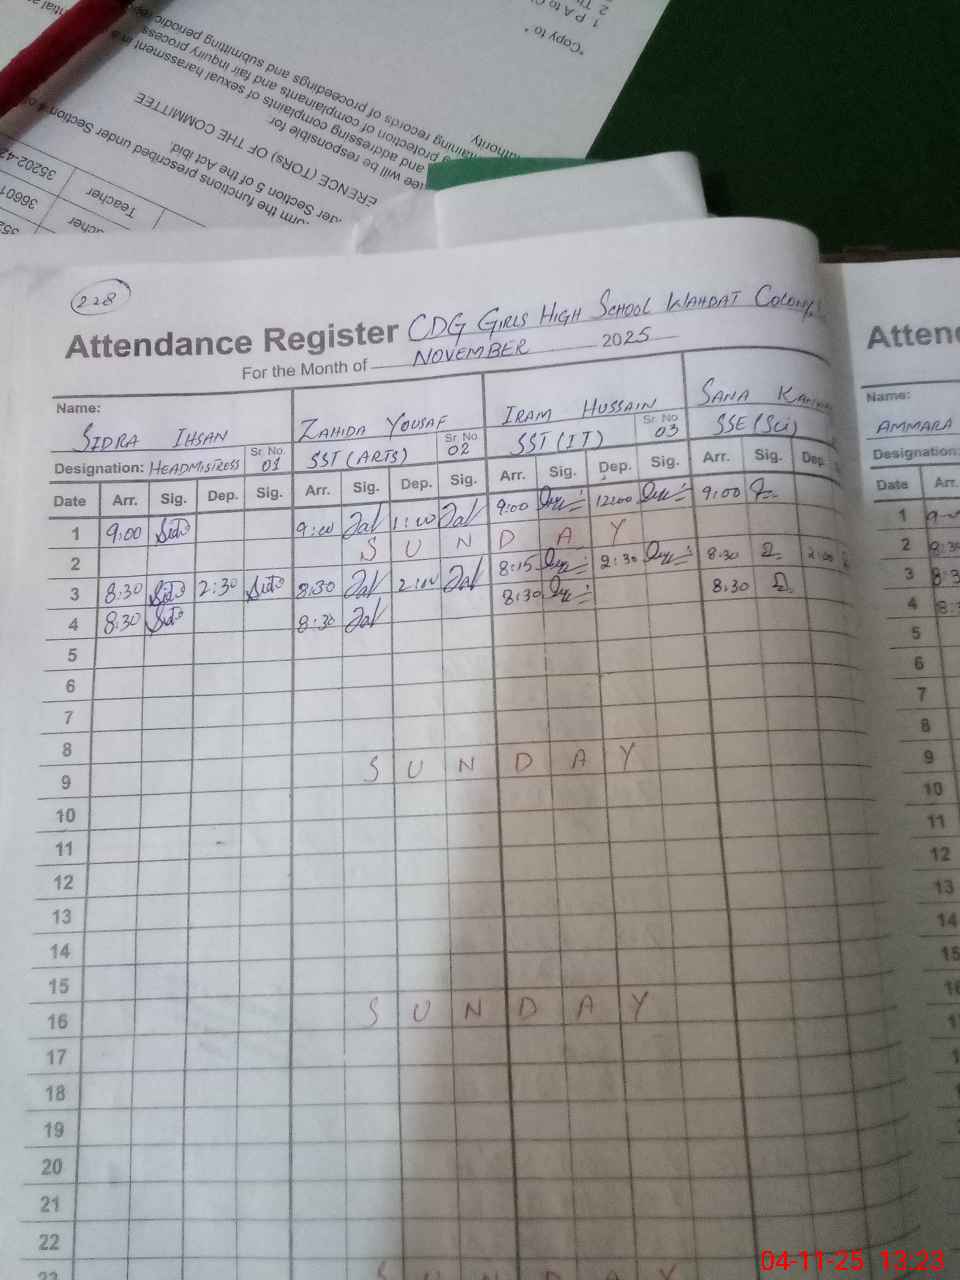 "Copy to"
1 P A to C
2 Th
authority.
records of proceedings and submitting periodic
protection of complainants and fair inquiry process
and addressing complaints of sexual harassment in
tee will be responsible for
ERENCE (TORs) OF THE COMMITTEE
der Section 5 of the Act ibid.
orm the functions prescribed under Section 4 of
Teacher
35202-42
cher
36601
352
228
Attendance Register CDG GIRLS HIGH SCHOOL WAHDAT COLONY
For the Month of NOVEMBER 2025
Name: SIDRA IHSAN ZAHIDA YOUSAF IRAM HUSSAIN SANA
Designation: HEADMISTRESS Sr. No. 01 SST (ARTS) Sr. No. 02 SST (IT) Sr. No. 03 SSE (Sci)
Date Arr. Sig. Dep. Sig. Arr. Sig. Dep. Sig. Arr. Sig. Dep. Sig. Arr. Sig. Dep.
1 9:00 9:00 1:00 9:00 12:00 9:00
2 S U N D A Y
3 8:30 2:30 8:30 2:00 8:15 2:30 8:30 2:00
4 8:30 8:30 8:30 8:30
5
6
7
8
9 S U N D A Y
10
11
12
13
14
15
16 S U N D A Y
17
18
19
20
21
22
23 S U N D A Y
Atten
Name:
AMMARA
Designation:
Date Arr.
1
2 8:30
3 8:3
4 8:
5
6
7
8
9
10
11
12
13
14
15
04-11-25 13:23